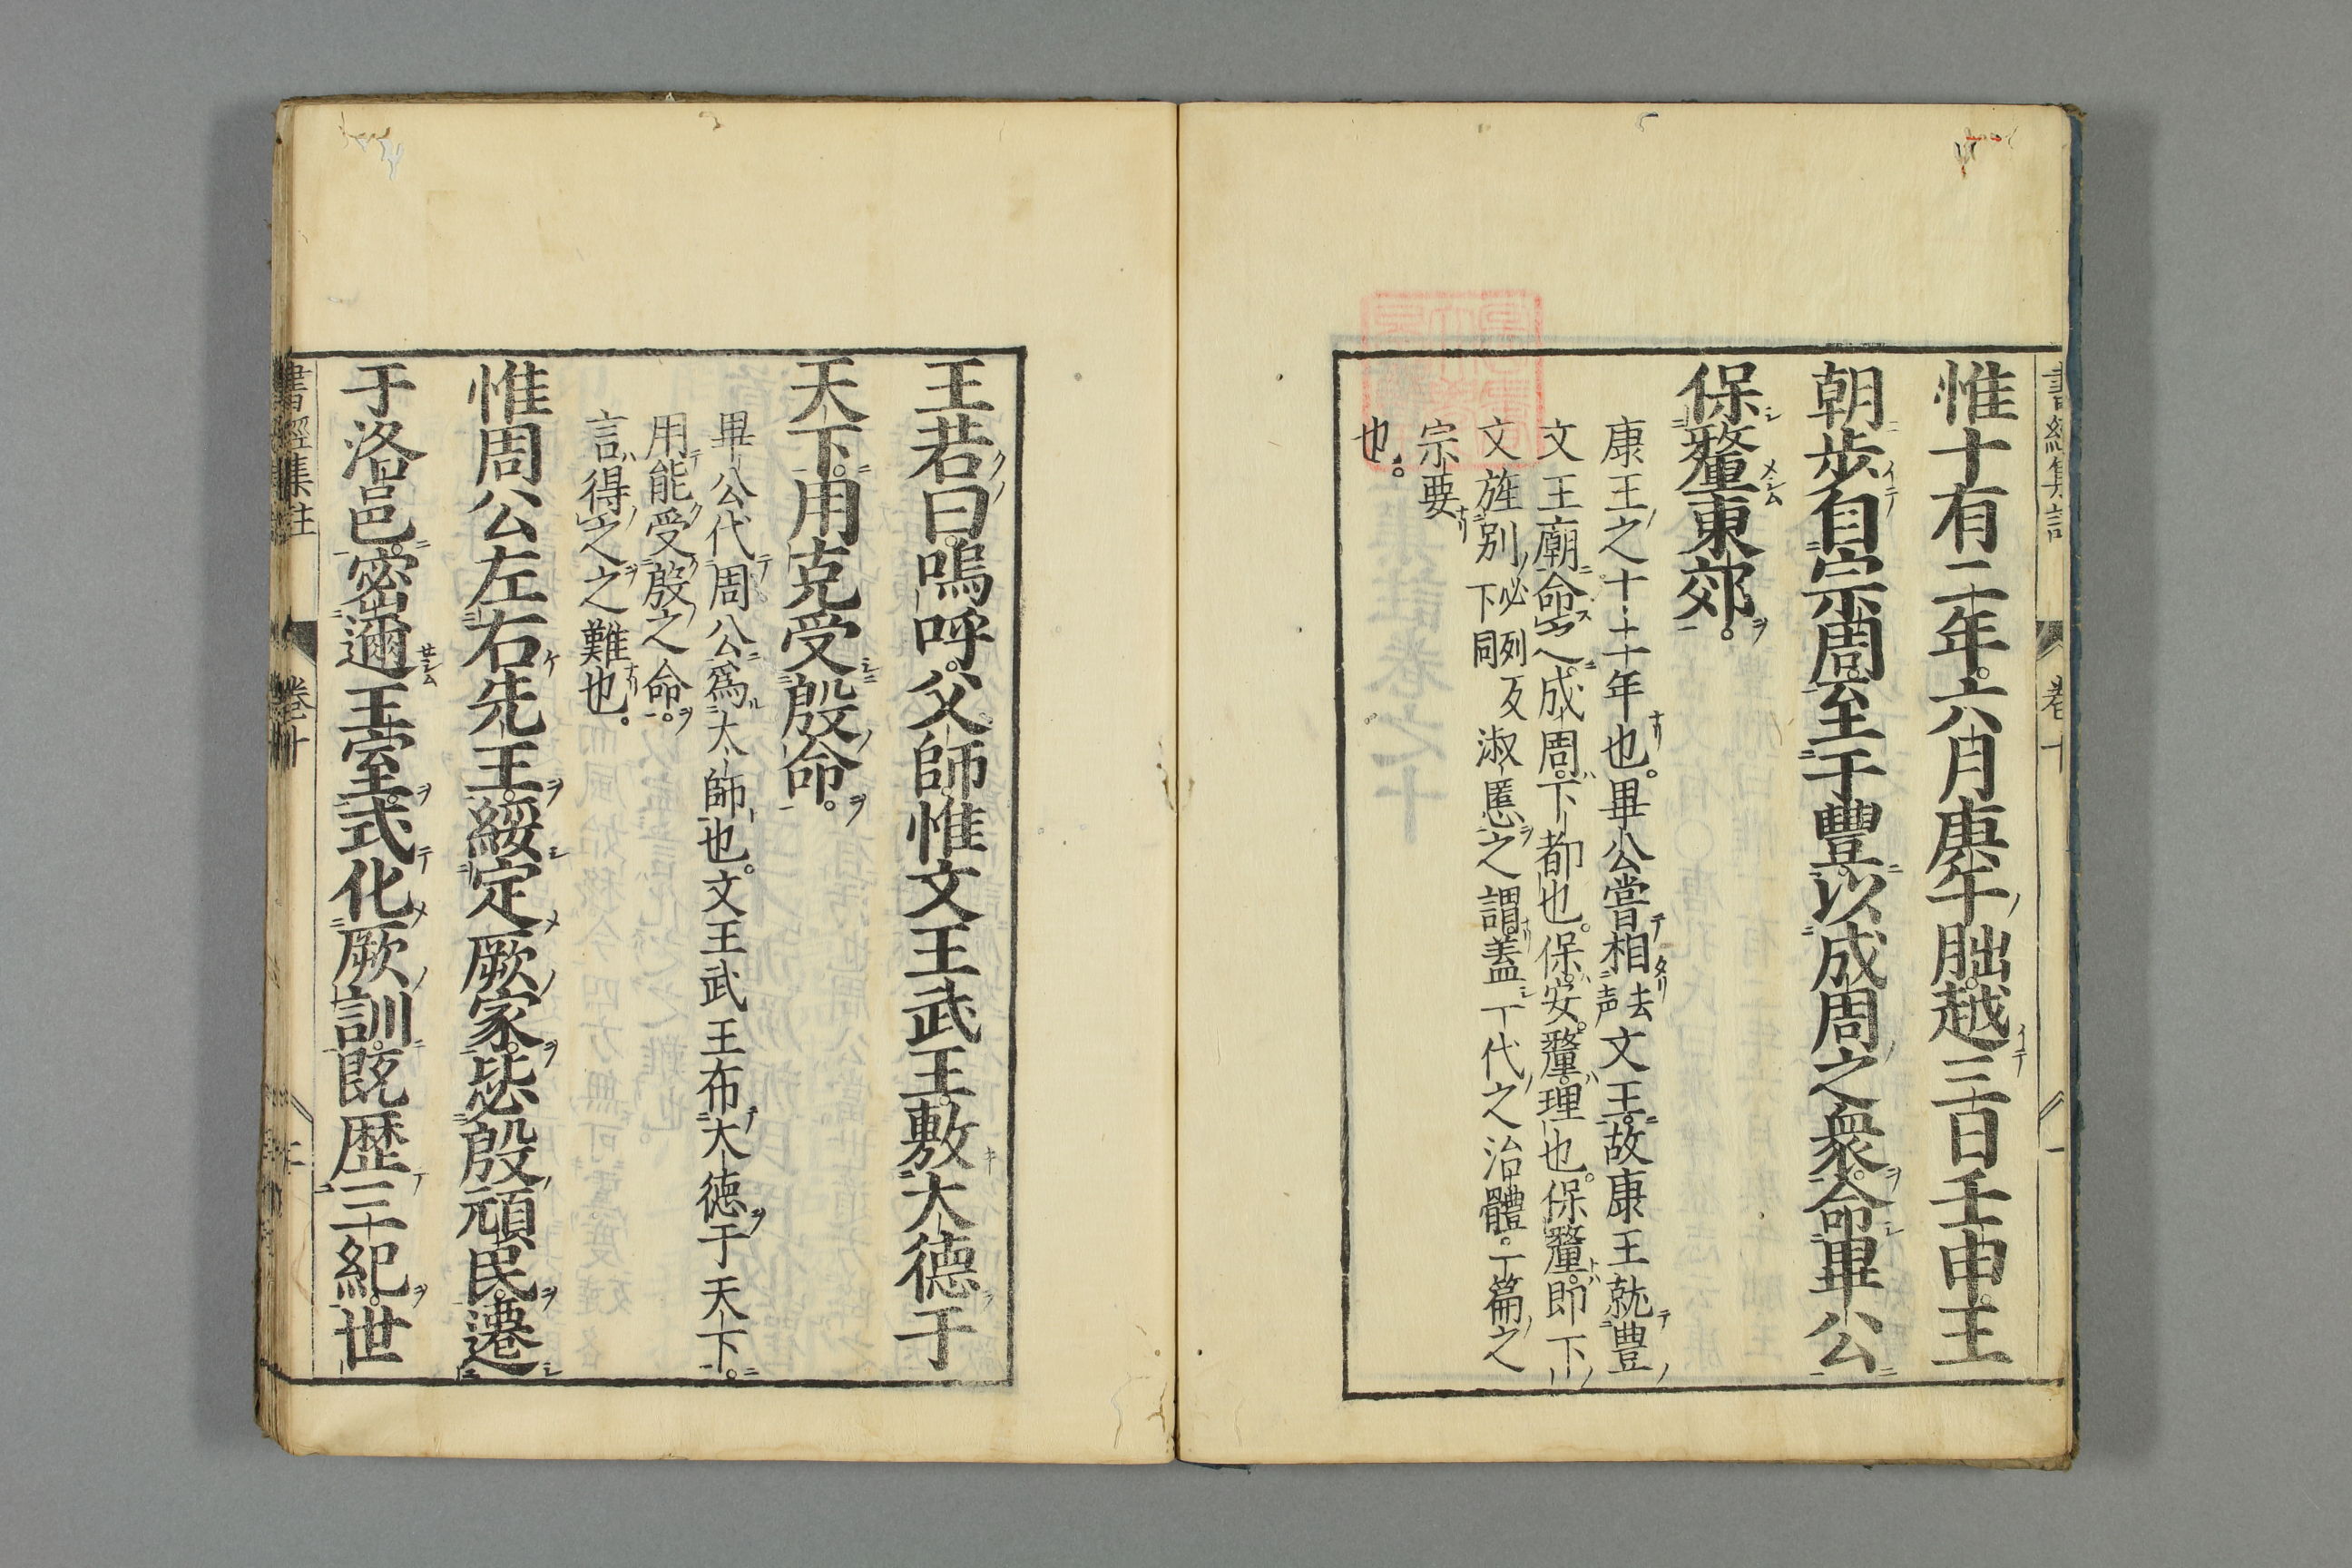 惟十有二年。六月庚午朏。越三日壬申。王
朝歩自宗周。至于豐。以成周之衆。命畢公
保釐東郊。
康王之十二年也。畢公嘗相去声文王。故康王就豊
文王廟命之。成周。下都也。保。安。釐。理也。保釐。即下
文旌別必列反下同淑慝之謂。蓋一代之治體。一篇之
宗要
也。
王若曰。嗚呼。父師。惟文王武王。敷大德于
天下。用克受殷命。
畢公代周公爲大師也。文王武王布大徳于天下。
用能受殷之命。
言得之之難也。
惟周公左右先王。綏定厥家。毖殷頑民。遷
于洛邑。密邇王室。式化厥訓。既歴三紀。世
書經集註 卷十